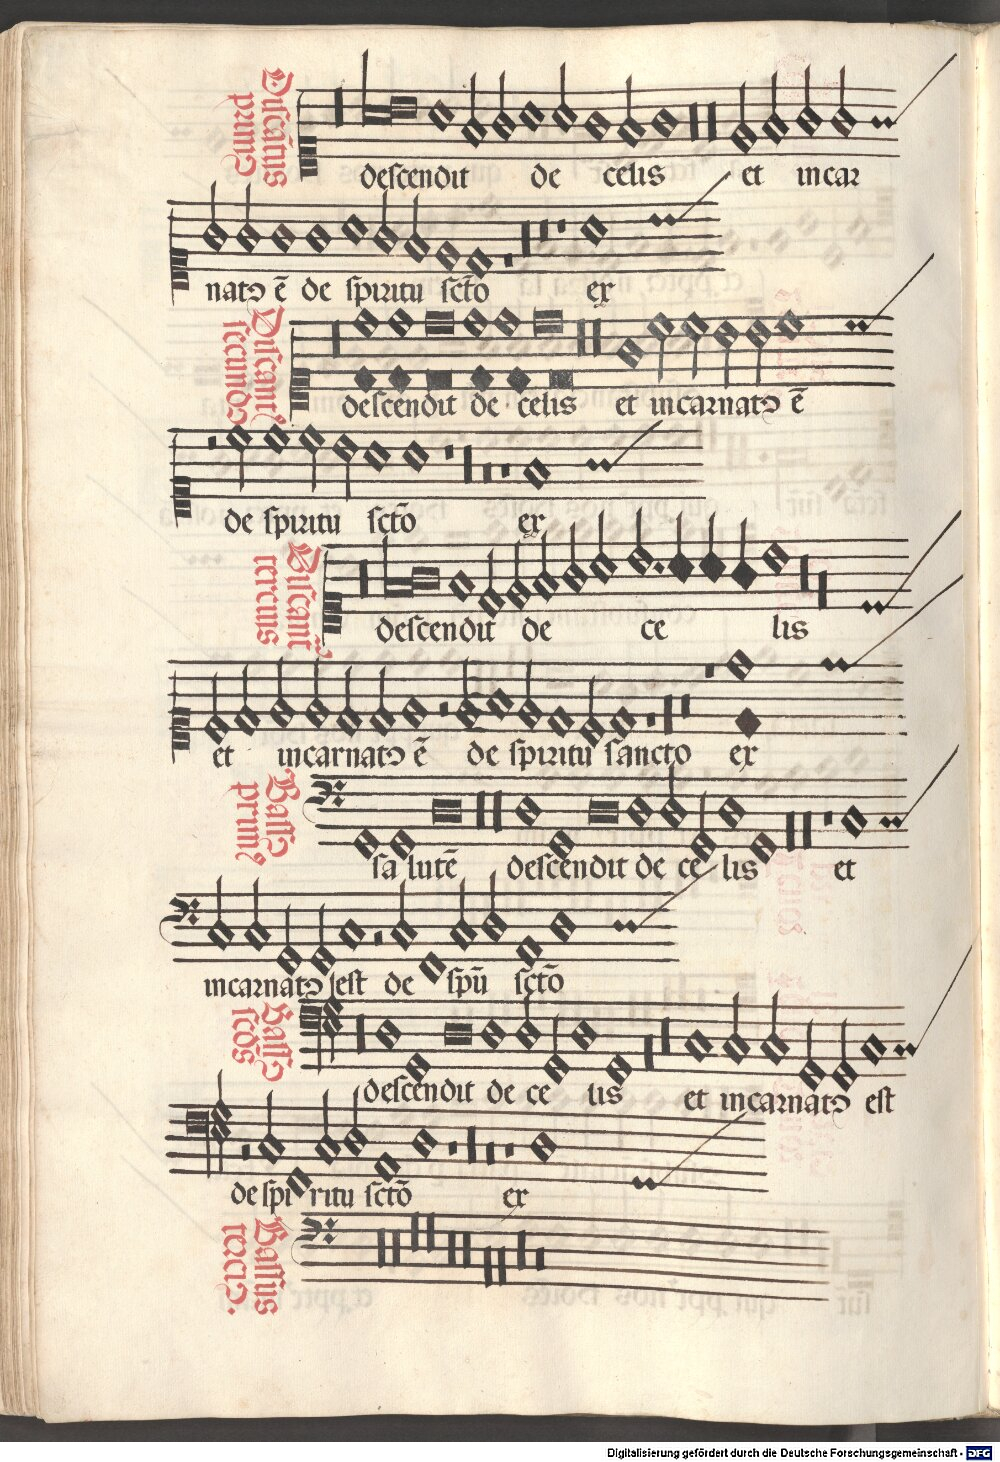 Discātus
primꝰ
descendit de celis et incar
natꝰ ē de spiritu scto ex
Discantꝰ
secundꝰ
descendit de celis et incarnatꝰ ē
de spiritu scto ex
Discantꝰ
tercius
descendit de ce lis
et incarnatꝰ ē de spiritu sancto ex
Bassꝰ
primꝰ
sa lutē descendit de ce lis et
incarnatꝰ est de spū sctō
Bassꝰ
scds
descendit de ce lis et incarnatꝰ est
de spi ritu sctō ex
Bassus
terciꝰ.
Digitalisierung gefördert durch die Deutsche Forschungsgemeinschaft - DFG